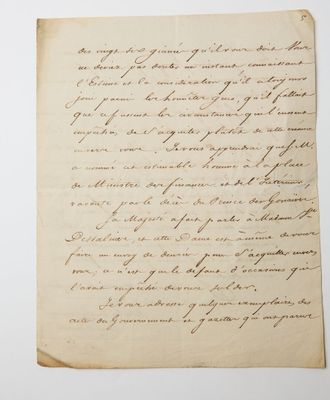 5
des vingt six gourdes qu'il vous doit. Vous
ne devez pas douter un instant connaissant
l'Estime et la considération qu'il a toujours
joui parmi les honnêtes gens, qu'il fallait
que ce fussent les circonstances qui l'eussent
empêché, de s'acquitter plutôt de cette somme
envers vous. Je vous apprendrai que S. M.
a nommé cet estimable homme à la place
de Ministre des finances et de l'Intérieur,
vacante par le décès du Prince des Gonaïves.
Sa Majesté a fait parler à Madame
Dessalines, et cette Dame est à même de vous
faire un envoy de denrées pour s'acquitter envers
vous; ce n'est que le défaut d'occasions qui
l'avait empêché de vous solder.
Je vous adresse quelques exemplaires, des
actes du Gouvernement et gazettes qui ont parues